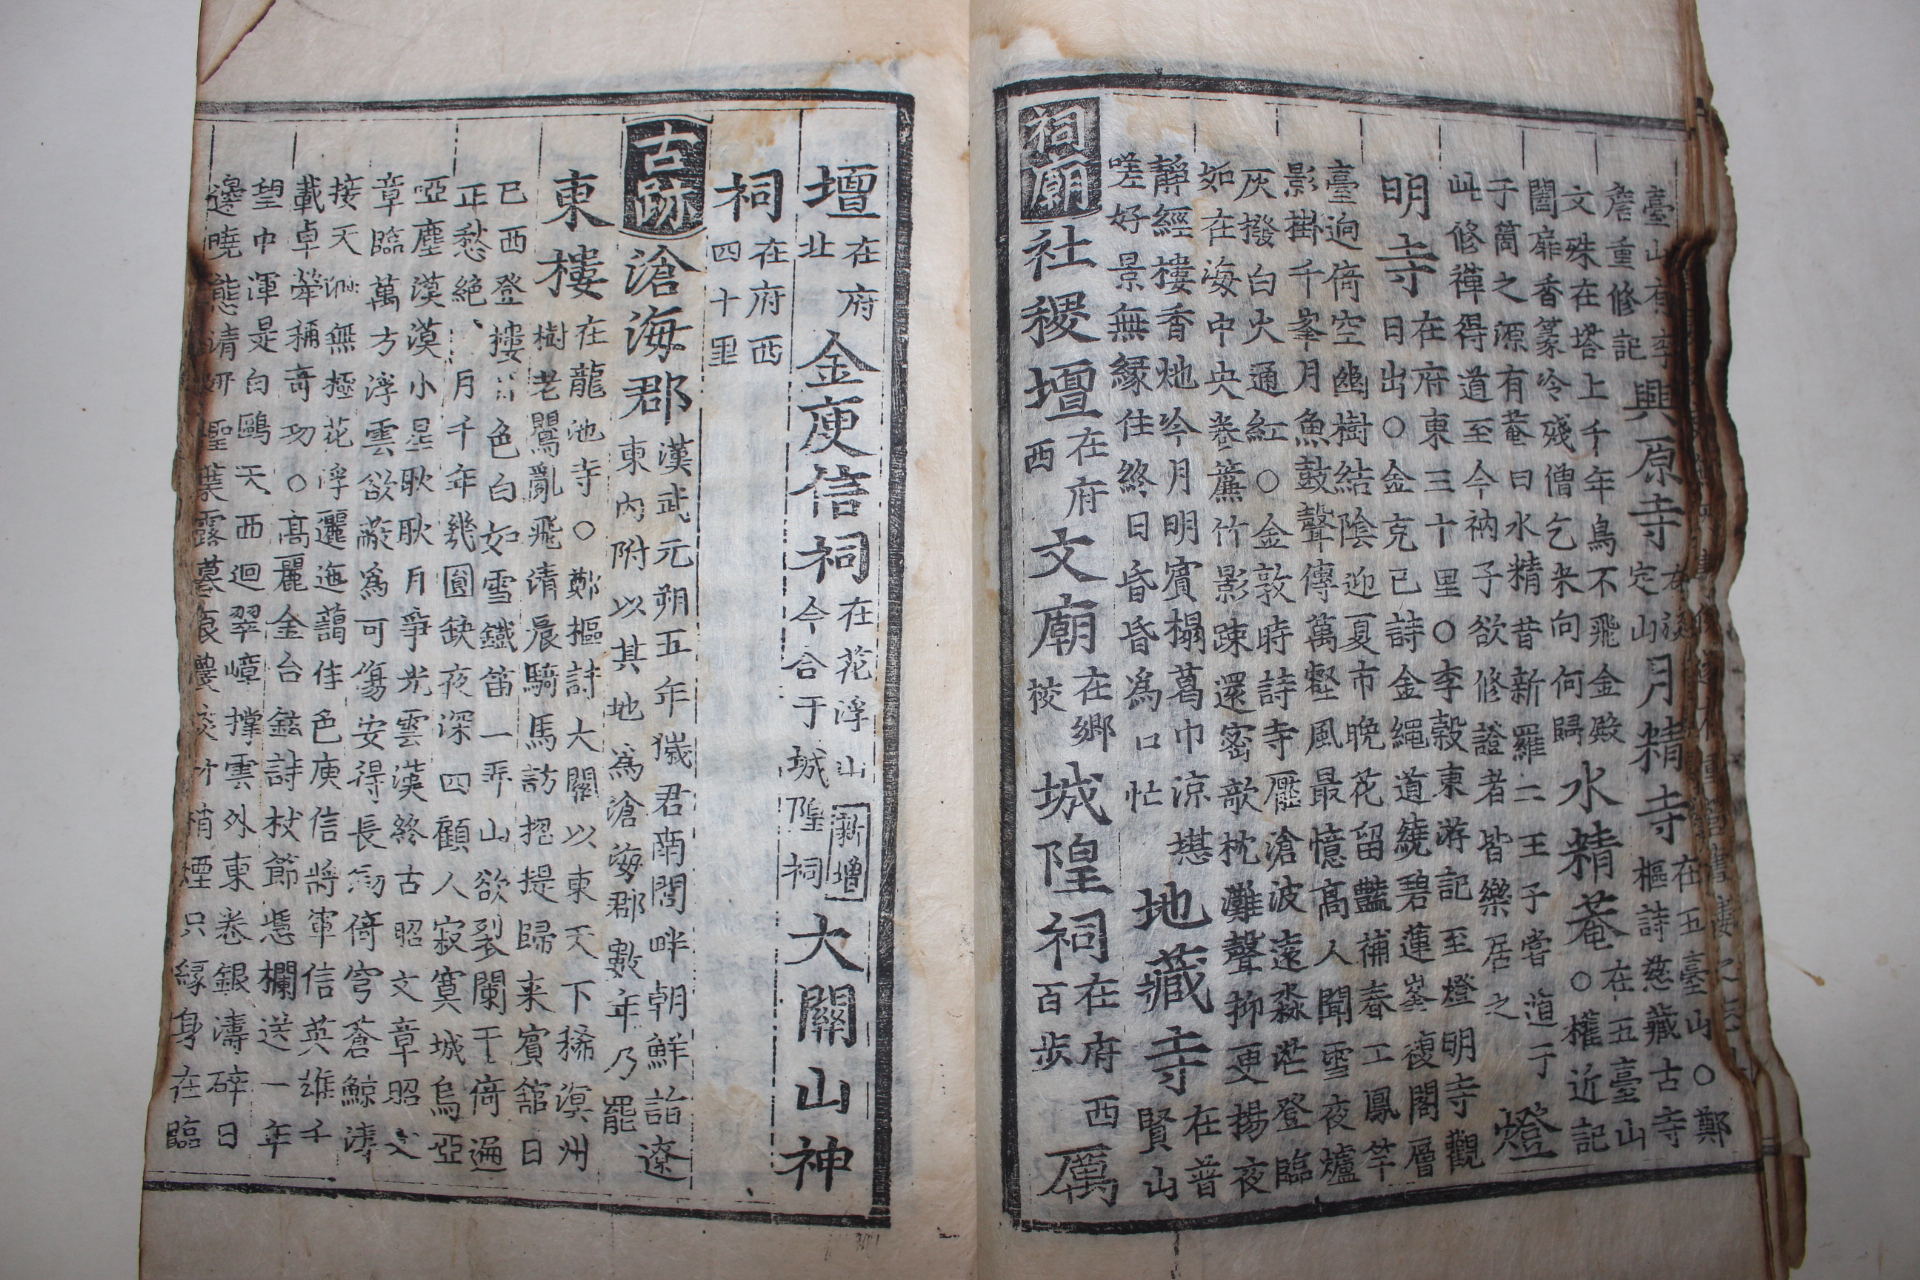 臺山有李
詹重修記
興原寺
定山
月精寺
在五臺山○鄭
樞詩慈藏古寺
文殊在塔上千年鳥不飛金殿
閣扉香篆冷殘僧乞米向何歸
水精菴
在五臺山
○權近記
于筒之源有菴曰水精昔新羅二王子嘗遁于
此修禪得道至今衲子欲修證者皆樂居之
燈
明寺
在府東三十里○李穀東游記至燈明寺觀
日出○金克己詩金繩道繞碧蓮峯複閣層
臺逈倚空幽樹結陰迎夏市晩花留豔補春工鳳竿
影掛千峯月魚鼓聲傳萬壑風最憶高人聞雪夜爐
灰撥白火通紅○金敦時詩寺壓滄波遠淼茫登臨
如在海中央卷簾竹影踈還密欹枕灘聲抑更揚夜
靜經樓香灺吟月明賓榻葛巾凉堪
嗟好景無緣住終日昏昏爲口忙
地藏寺
在普
賢山
祠廟
社稷壇
在府
西
文廟
在鄕
校
城隍祠
在府西
百步
厲
壇
在府
北
金庾信祠
在花浮山
今合于城隍祠
新增
大關山神
祠
在府西
四十里
古跡
滄海郡
漢武元朔五年濊君南閭畔朝鮮詣遼
東內附以其地爲滄海郡數年乃罷
東樓
在龍池寺○鄭樞詩大關以東天下稀溟州
樹老鸎亂飛淸晨騎馬訪招提歸来賓舘日
已西登樓 色白如雪鐵笛一弄山欲裂闌干倚遍
正愁絶 月千年幾圓缺夜深四顧人寂寞城烏亞
啞塵漠漠小星耿耿月爭光雲漢終古昭文章昭文
章臨萬方浮雲欲蔽爲可傷安得長劒倚穹蒼鯨濤
接天 無極花浮邐迤藹佳色庾信將軍信英雄千
載卓犖稱奇功○高麗金台鉉詩杖節憑欄送一年
望中渾是白鷗天西迴翠嶂撑雲外東卷銀濤碎日
邊曉態淸姸 葉露暮 濃 竹梢煙只緣身在臨